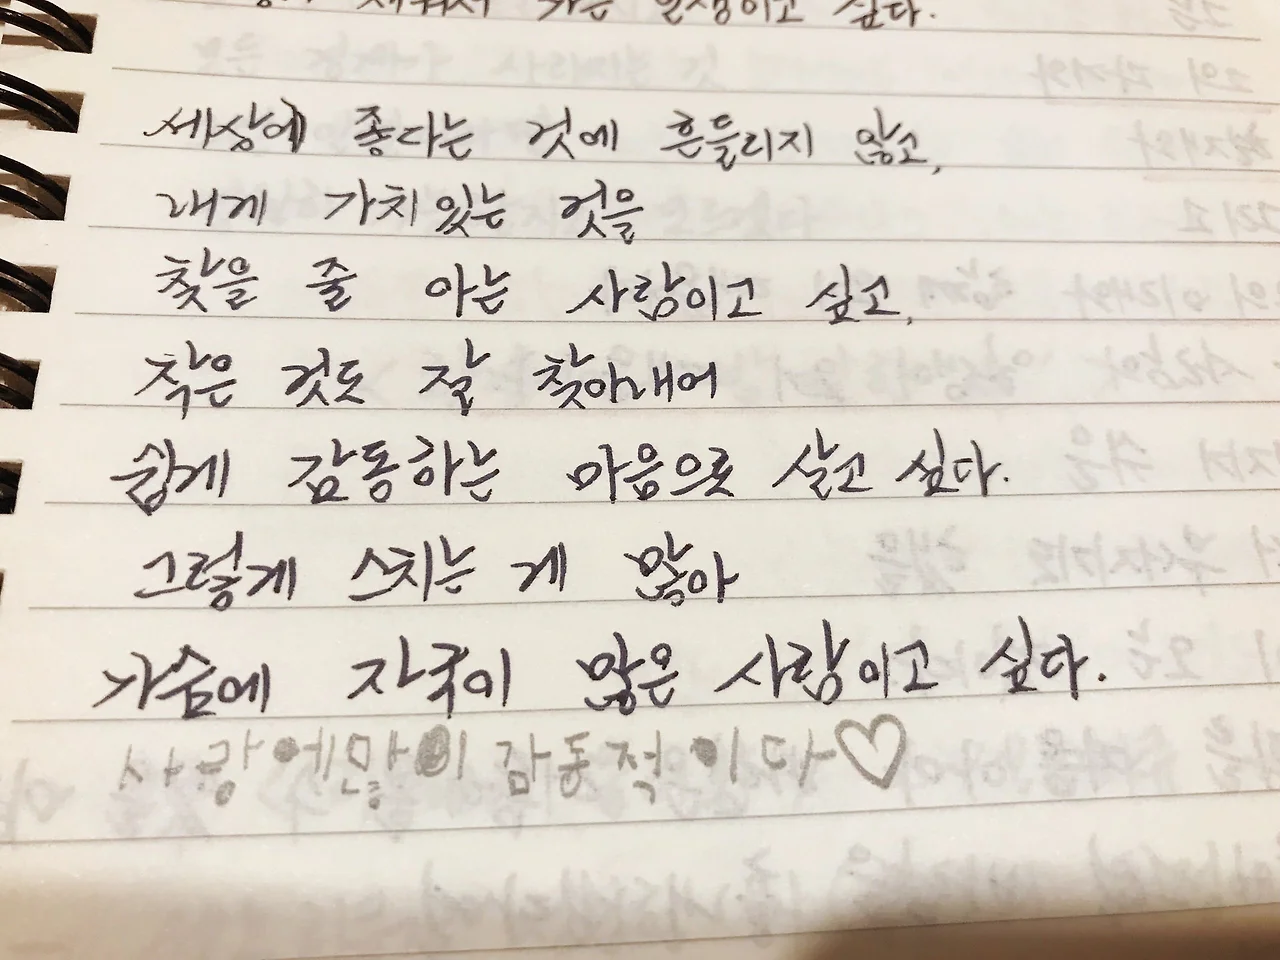 가는 일생이고 싶다.
세상에 좋다는 것에 흔들리지 않고,
내게 가치있는 것을
찾을 줄 아는 사람이고 싶고,
작은 것도 잘 찾아내어
쉽게 감동하는 마음으로 살고 싶다.
그렇게 스치는 게 많아
가슴에 자국이 많은 사람이고 싶다.
사랑에많이 감동적이다♡